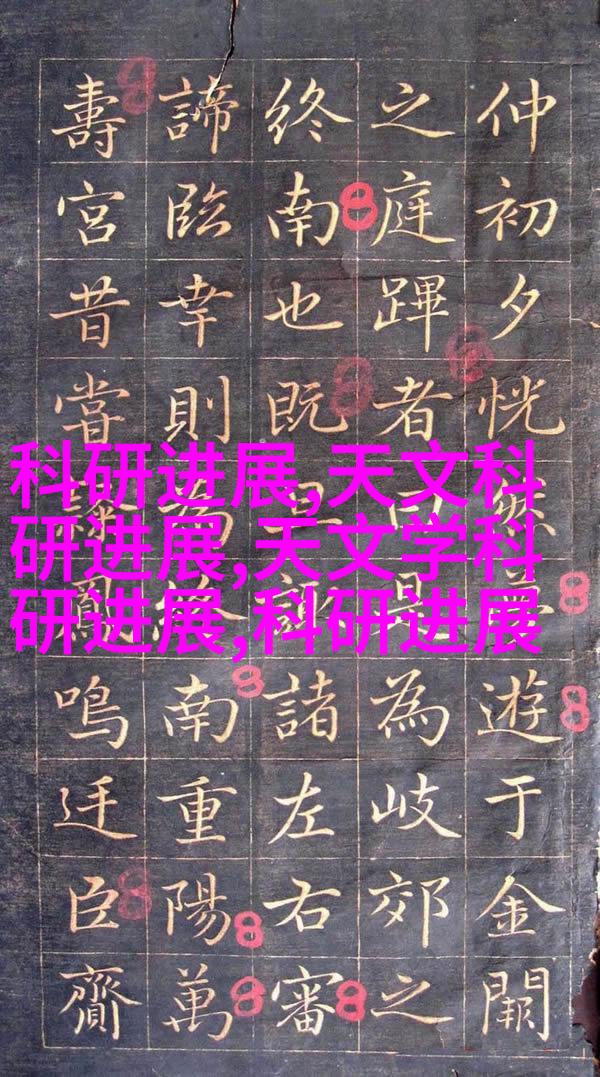 仲初夕恍然夢遊于金闕
之庭蹕者曰是為岐郊之
終南也既旦諸左右審
諦臨幸則為終南重陽萬
壽宮昔嘗鳳鳴廷臣齎
科研进展,天文科
研进展,天文学科
研进展,科研进展